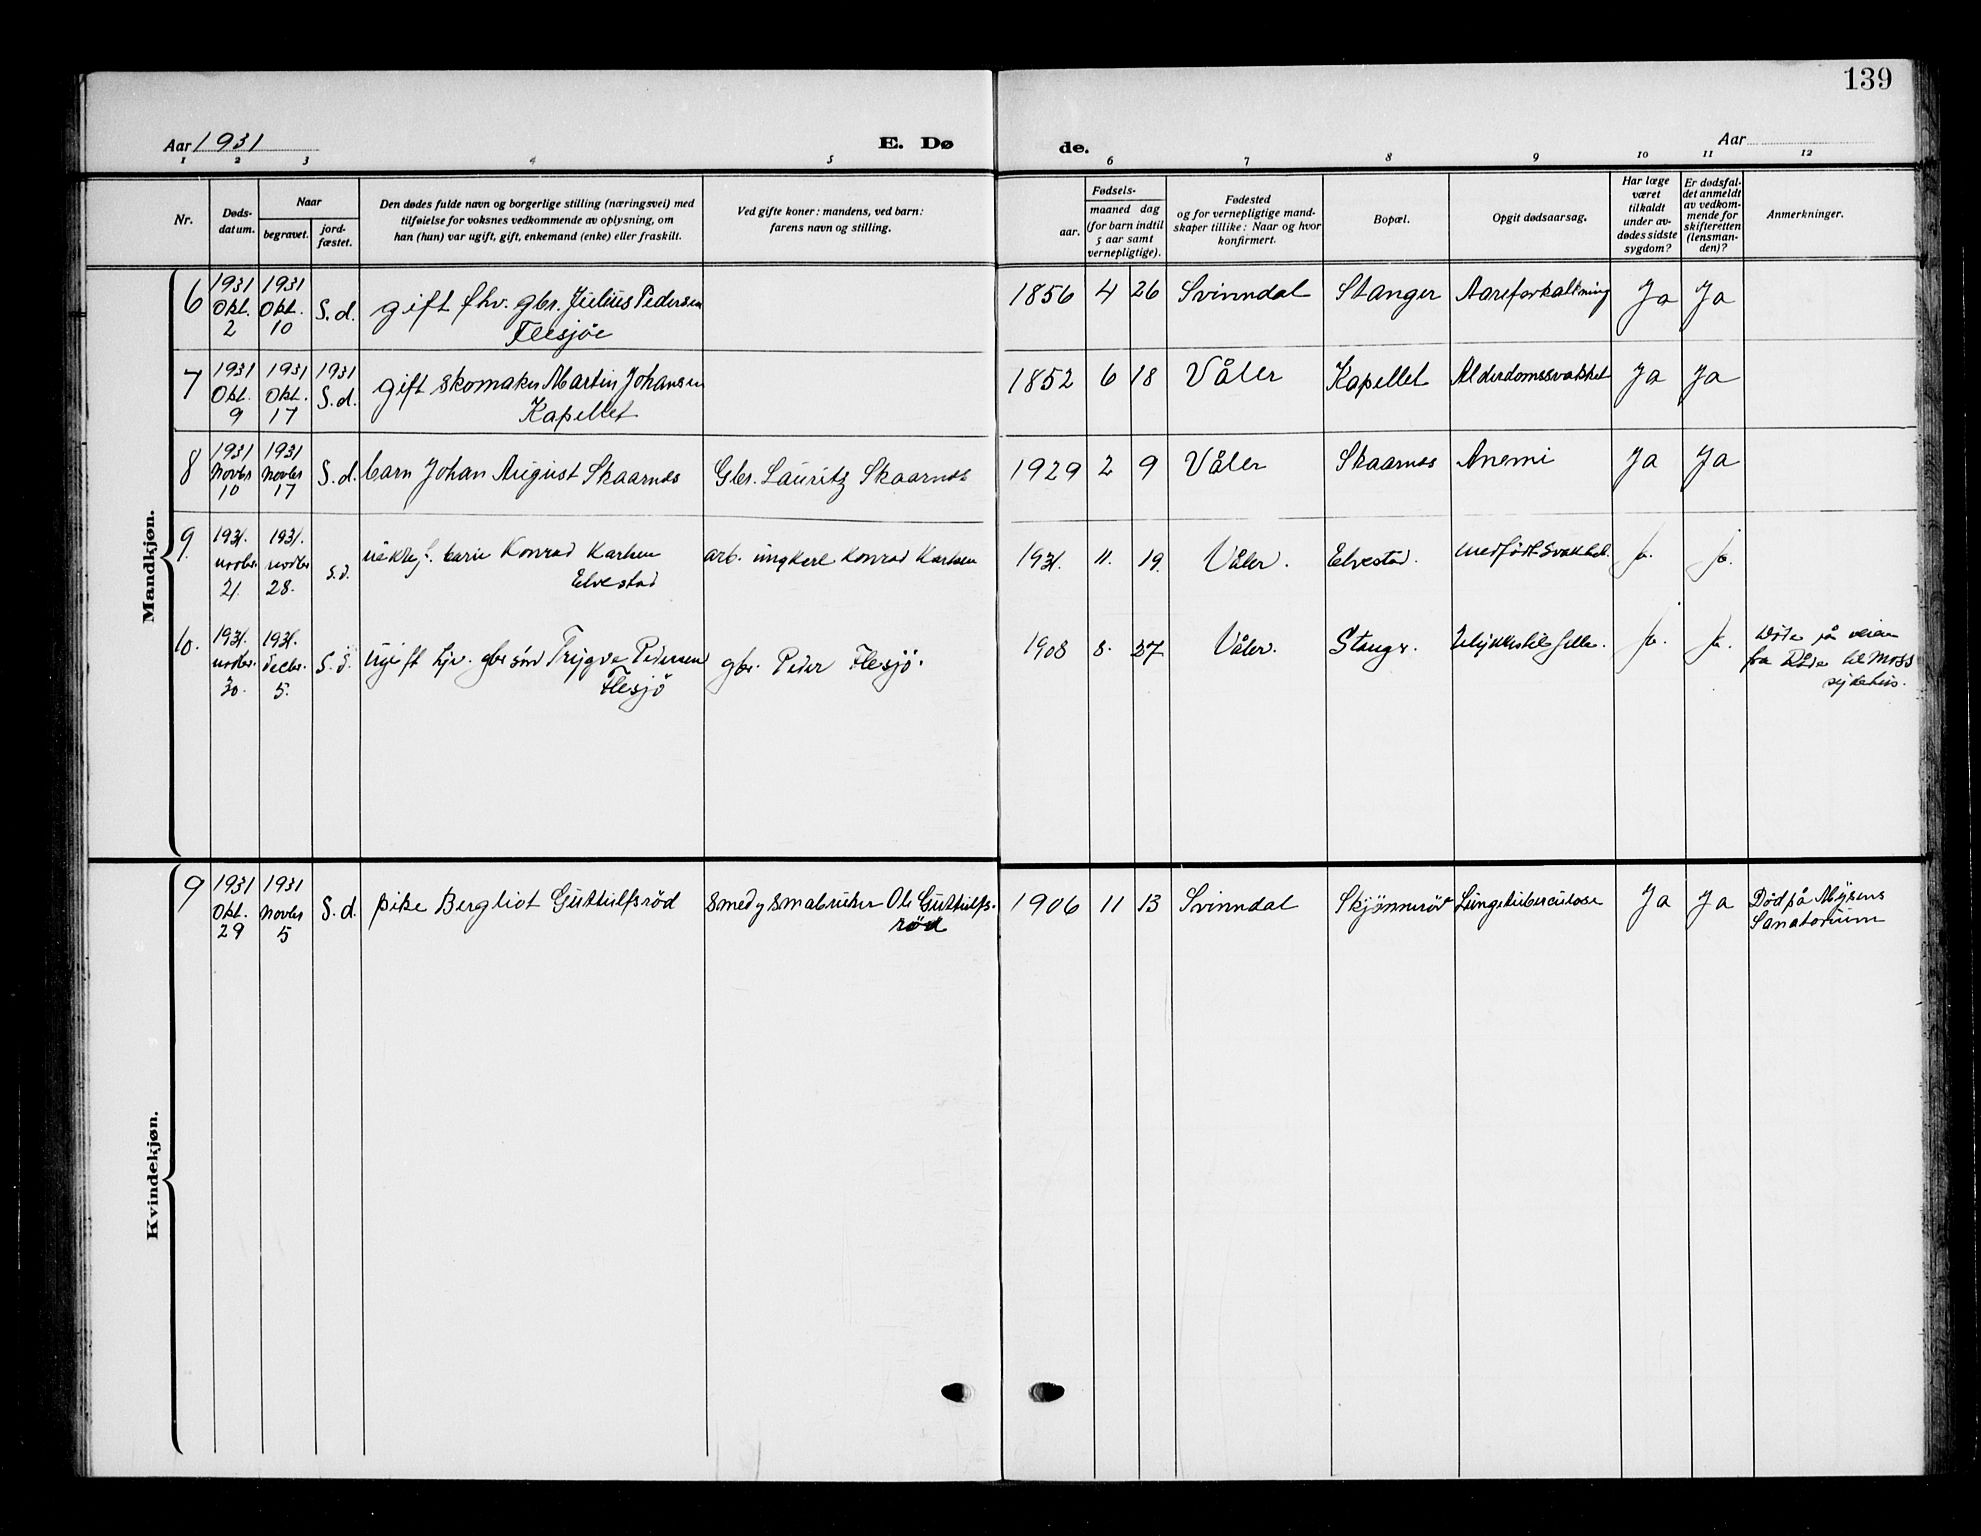 139
Aar 1931
E. Dø
de.
Aar
1 2 3 4 5 6 7 8 9 10 11 12
Nr.
Døds-
datum.
Naar
begravet.
jord-
fæstet.
Den dødes fulde navn og borgerlige stilling (næringsvei) med
tilføielse for voksnes vedkommende av oplysning, om
han (hun) var ugift, gift, enkemand (enke) eller fraskilt.
Ved gifte koner: mandens, ved barn:
farens navn og stilling.
Fødsels-
aar.
maaned dag
(for barn indtil
5 aar samt
vernepligtige).
Fødested
og for vernepligtige mand-
skaper tillike: Naar og hvor
konfirmert.
Bopæl.
Opgit dødsaarsag.
Har læge
været
tilkaldt
under av-
dødes sidste
sygdom?
Er dødsfal-
det anmeldt
av vedkom-
mende for
skifteretten
(lensman-
den)?
Anmerkninger.
Mandkjøn.
6 1931 1931
Okt. Okt. S.d. gift fhv. gbr. Julius Pedersen 1856 4 26 Svinndal Stanger Aareforkalkning Ja Ja
2 10 Flesjöe
7 1931 1931 1931
Okt. Okt. S.d. gift skomaker Martin Johansen 1852 6 18 Våler Kapellet Alderdomssvakhet Ja Ja
9 17 Kapellet
8 1931 1931
Novbr Novbr S.d. barn Johan August Skaarnes Gbr. Lauritz Skaarnes 1929 2 9 Våler Skaarnes Anemi Ja Ja
10 17
9. 1931. 1931.
novbr. novbr S.d. Konrad Karlsen arb. ungkarl Konrad Karlsen 1931. 11. 19. Våler. Elvestad. medfödt svakhet. ja. ja.
21. 28. Elvestad
10. 1931. 1931.
novbr. decbr. S.d. Ugift hjv. gbr sön Trygve Pedersen gbr. Peder Flesjö. 1908 8. 27 Våler. Stangr. Ulykkestilfelle. ja. ja. Döde på veien
30. 5. Flesjö fra Råde til Moss
sykehus.
Kvindekjøn.
9 1931 1931
Okt. Novbr S.d. pike Bergliot Guttulfsröd Smed y småbruker Ole Guttulfs- 1906 11 13 Svinndal Skjönneröd Lungetuberculose Ja Ja Död på Mysens
29 5 röd Sanatorium